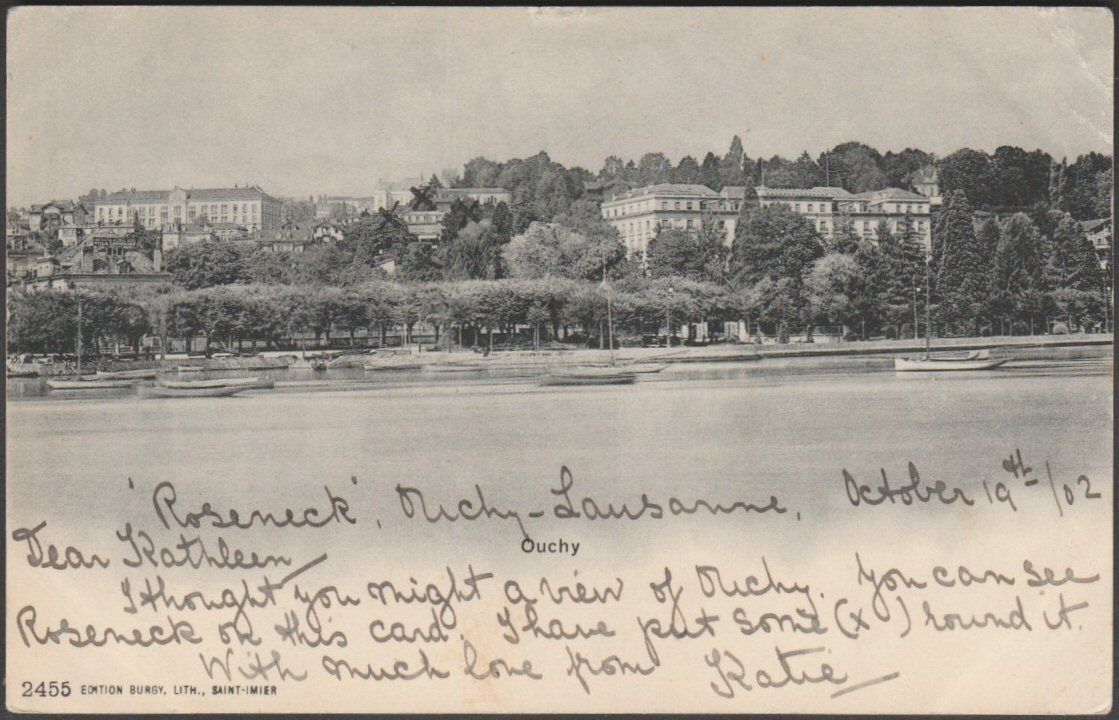 'Roseneck', Ouchy-Lausanne, October 19th/02
Ouchy
Dear Kathleen
I thought you might a view of Ouchy. You can see
Roseneck on this card. I have put some (x ) round it.
With much love from Katie
2455 EDITION BURGY, LITH., SAINT-IMIER